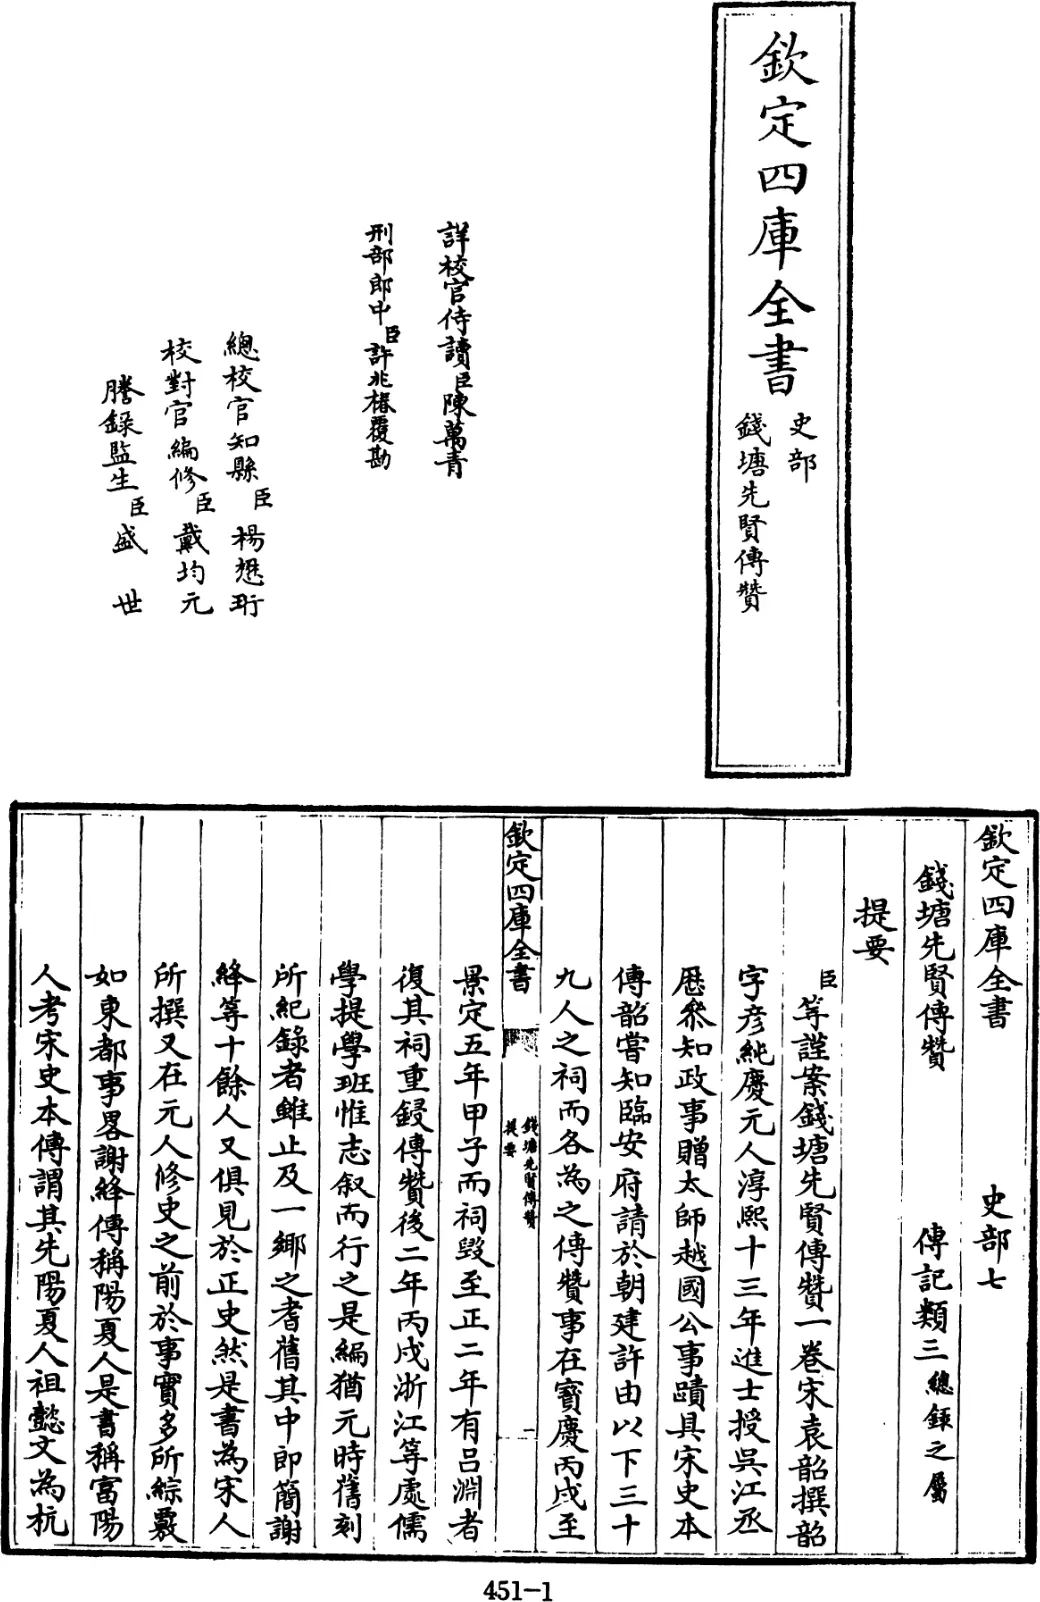 欽定四庫全書
史部
錢塘先賢傳贊
詳校官侍讀臣陳萬青
刑部郎中臣許兆椿覆勘
總校官知縣臣楊懋珩
校對官編修臣戴均元
謄錄監生臣盛世
欽定四庫全書 史部七
錢塘先賢傳贊 傳記類三總錄之屬
提要
臣等謹案錢塘先賢傳贊一卷宋袁韶撰韶
字彥純慶元人淳熙十三年進士授吳江丞
歷叅知政事贈太師越國公事蹟具宋史本
傳韶嘗知臨安府請於朝建許由以下三十
九人之祠而各為之傳贊事在寶慶丙戌至
欽定四庫全書
錢塘先賢傳贊
提要
一
景定五年甲子而祠毀至正二年有呂淵者
復其祠重鋟傳贊後二年丙戌浙江等處儒
學提學班惟志叙而行之是編猶元時舊刻
所紀錄者雖止及一鄉之耆舊其中即簡謝
絳等十餘人又俱見於正史然是書為宋人
所撰又在元人修史之前於事實多所綜覈
如東都事畧謝絳傳稱陽夏人是書稱富陽
人考宋史本傳謂其先陽夏人祖懿文為杭
451-1